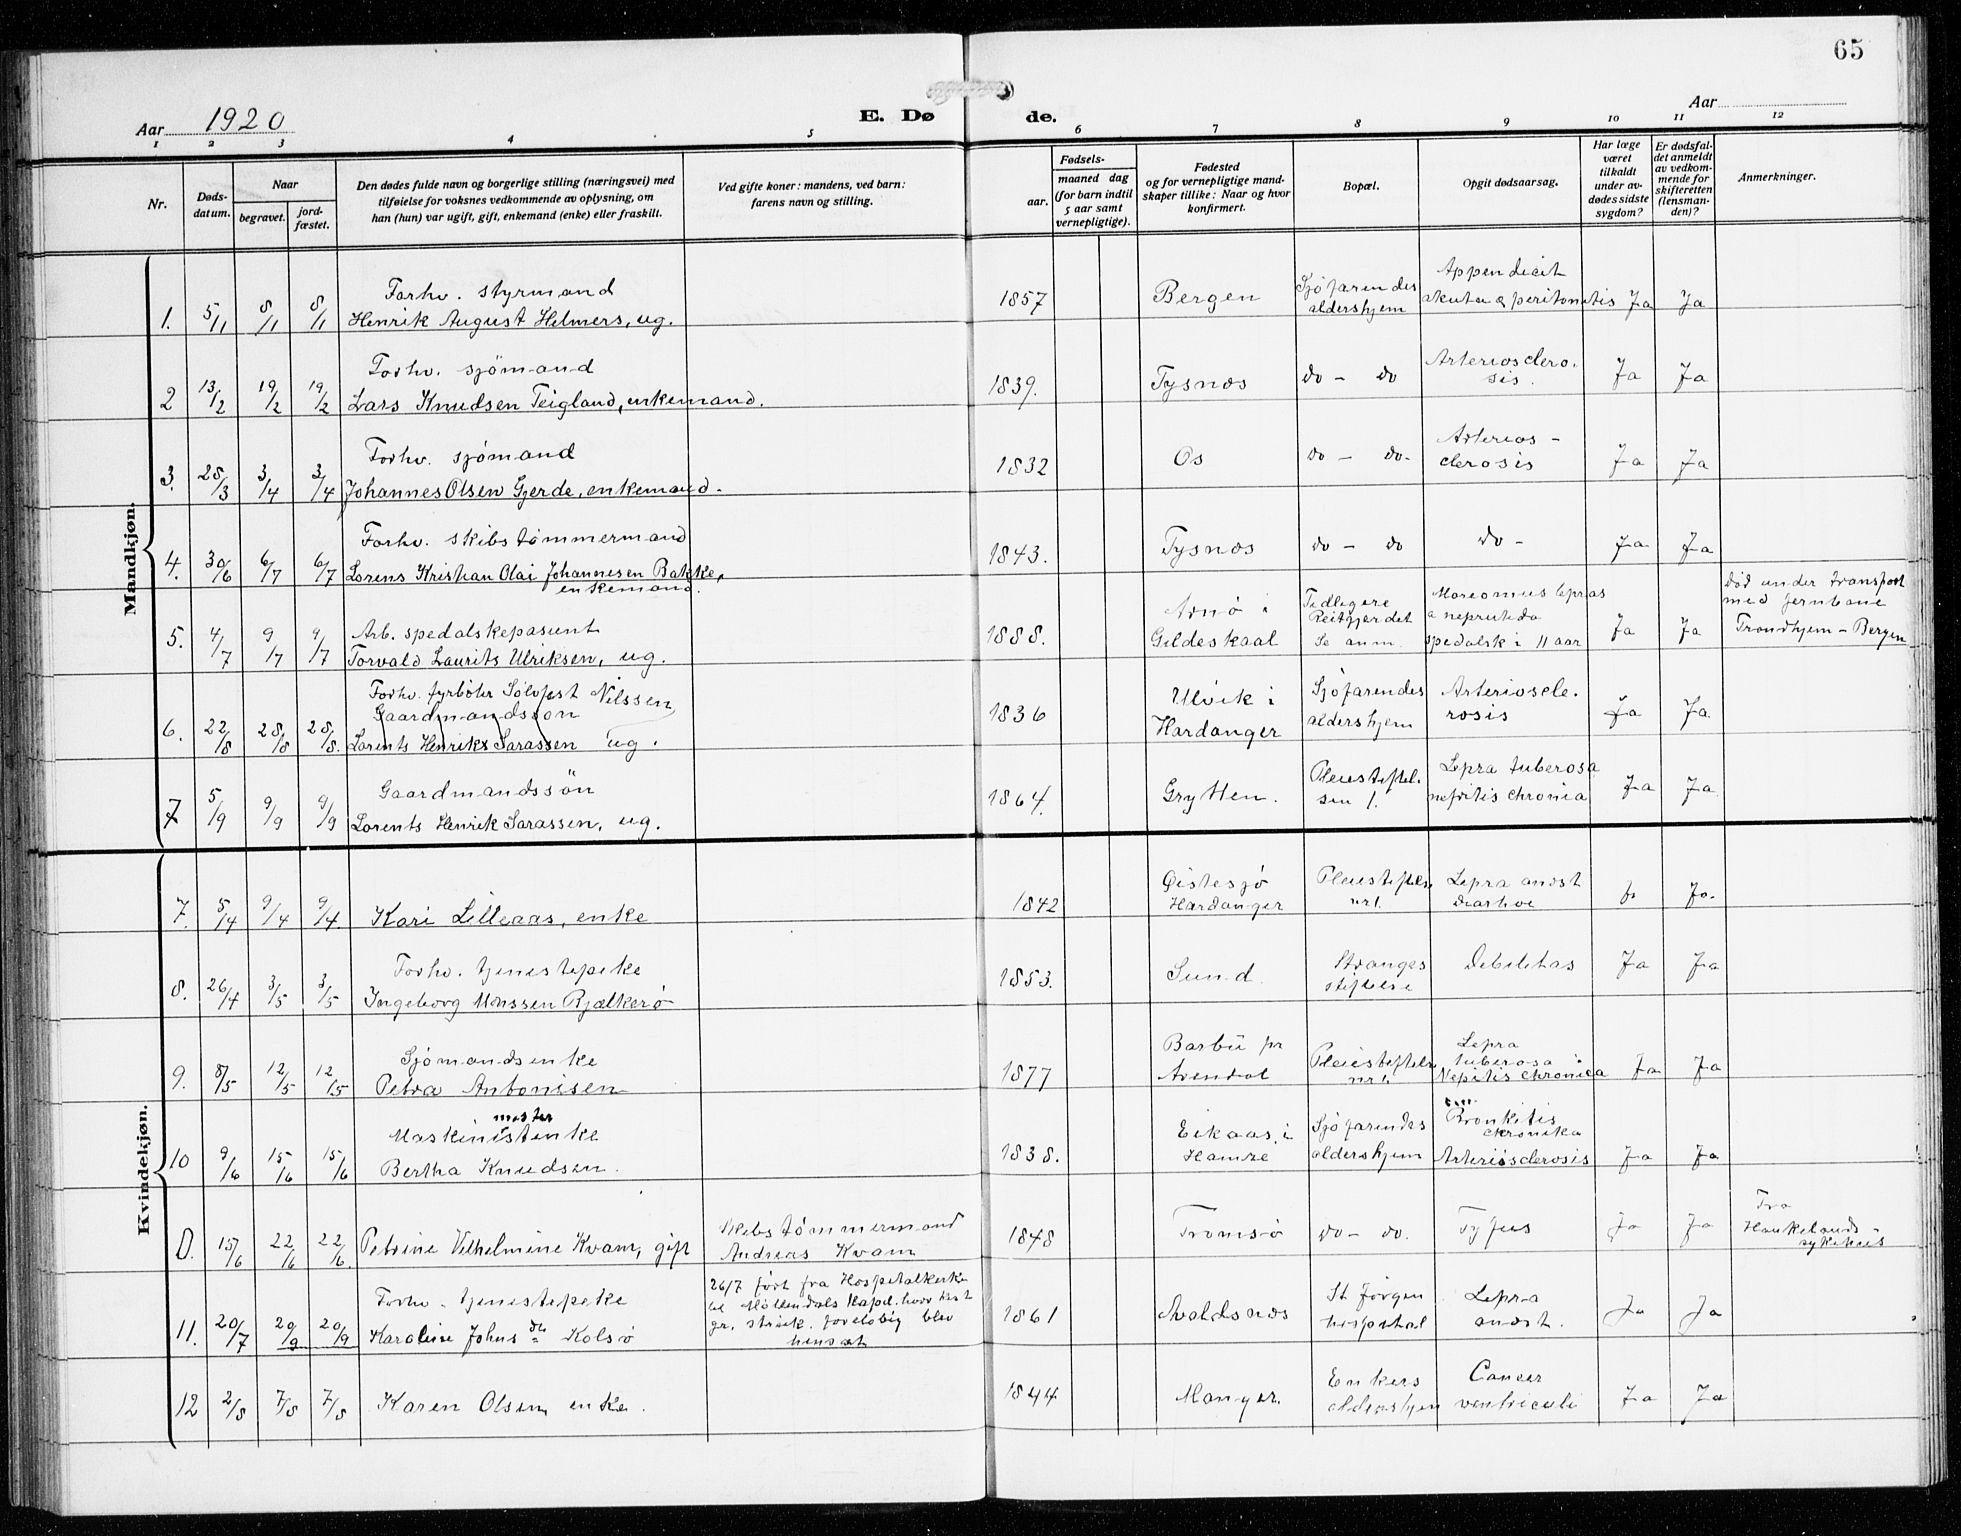 65
Aar 1920
E. Dø de.
Aar
1 2 3 4 5 6 7 8 9 10 11 12
Nr.
Døds-
datum.
Naar
begravet.
jord-
fæstet.
Den dødes fulde navn og borgerlige stilling (næringsvei) med
tilføielse for voksnes vedkommende av oplysning, om
han (hun) var ugift, gift, enkemand (enke) eller fraskilt.
Ved gifte koner: mandens, ved barn:
farens navn og stilling.
Fødsels-
aar.
maaned dag
(for barn indtil
5 aar samt
vernepligtige).
Fødested
og for vernepligtige mand-
skaper tillike: Naar og hvor
konfirmert.
Bopæl.
Opgit dødsaarsag.
Har læge
været
tilkaldt
under av-
dødes sidste
sygdom?
Er dødsfal-
det anmeldt
av vedkom-
mende for
skifteretten
(lensman-
den)?
Anmerkninger.
Mandkjøn.
1. 5/1 8/1 8/1
Forhv. styrmand
Henrik August Helmers, ug.
1857
Bergen
Sjöfarendes
aldershjem
Appendicit
akuta & peritonitis
Ja Ja
2 13/2 19/2 19/2
Forhv. sjömand
Lars Knudsen Teigland, enkemand.
1839.
Tysnæs
do - do
Arterioscləro-
sis.
Ja Ja
3. 28/3 3/4 3/4
Forhv. sjömand
Johannes Olsen Gjerde, enkemand.
1832
Os
do - do.
Arterios-
clerosis
Ja Ja
4. 30/6 6/7 6/7
Forhv. skibstömmermand
Lorens Kristian Olai Johannesen Bakke,
enkemand.
1843.
Tysnæs
do - do
do -
Ja Ja
5. 4/7 9/7 9/7
Arb. spedalskepasient
Torvald Laurits Ulriksen, ug.
1888.
Arnö i
Gildeskaal
Tidligere
Reitgjerdet
Se anm.
spedalsk i 11 aar
Ja Ja
Död under transport
med jernbane
Trondhjem - Bergen
6. 22/8 28/8 28/8.
Forhv. fyrböter Sölvfest Nilssen
Gaardmandssön
Lorents Henriks Sarassen ug.
1836
Ulvik i
Hardanger
Sjöfarendes
aldershjem
Arterioscle-
rosis
Ja Ja.
7 5/9 9/9 9/9
Gaardmandssön
Lorents Henrik Sarassen, ug.
1864.
Grytten.
Pleiestiftel-
sen 1.
Lepra tuberosa
nefritis chronia
Ja Ja
Kvindekjøn.
7. 5/4 9/4 9/4.
Kari Lilleaas, enke
1842
Östesjö
Hardanger
Pleiestiftels
nr1.
Lepra anæst
diarhoe
Ja.
8. 26/4 3/5 3/5
Forhv. tjenestepike
Ingeborg Monssen Bjælkerö
1853.
Sund.
Stranges
stiftelse
Debilitas
Ja Ja
9. 8/5 12/5 12/5
Sjömandsenke
Petra Antonisen
1877
Barbu pr
Arendal
Pleiestiftels
nr1.
Lepra
tuberosa
Nepitis chronica
Ja Ja
10 9/6 15/6 15/6
mester
Maskinistenke
Bertha Knudsen.
1838.
Eikaas, i
Hamre
Sjöfarendes
aldershjem
Bronkitis
chronika
Arteriosclerosis
Ja Ja
D. 15/6 22/6 22/6.
Petrine Vilhelmine Kvam, gift
Skibstömmermand
Andreas Kvam
1848
Tromsö
do - do.
Tyfus
Ja Ja
Fra
Haukelands-
sykehus
11. 20/7 20/9 20/9
Forhv. tjenestepike
Karoline Johns dtr Kolsö
26/7 fört fra Hospitalkirke
til Möllendals Kapel. hvor kist
gr. streik. foreløbig blev
hensat
1861
Avaldsnæs
St Jörgen
hospital
Lepra
anæst.
Ja Ja
12 2/8 7/8 7/8
Karen Olsen, enke.
1844
Manger.
Enkers
aldershjem
Cancer
ventriculi
Ja Ja